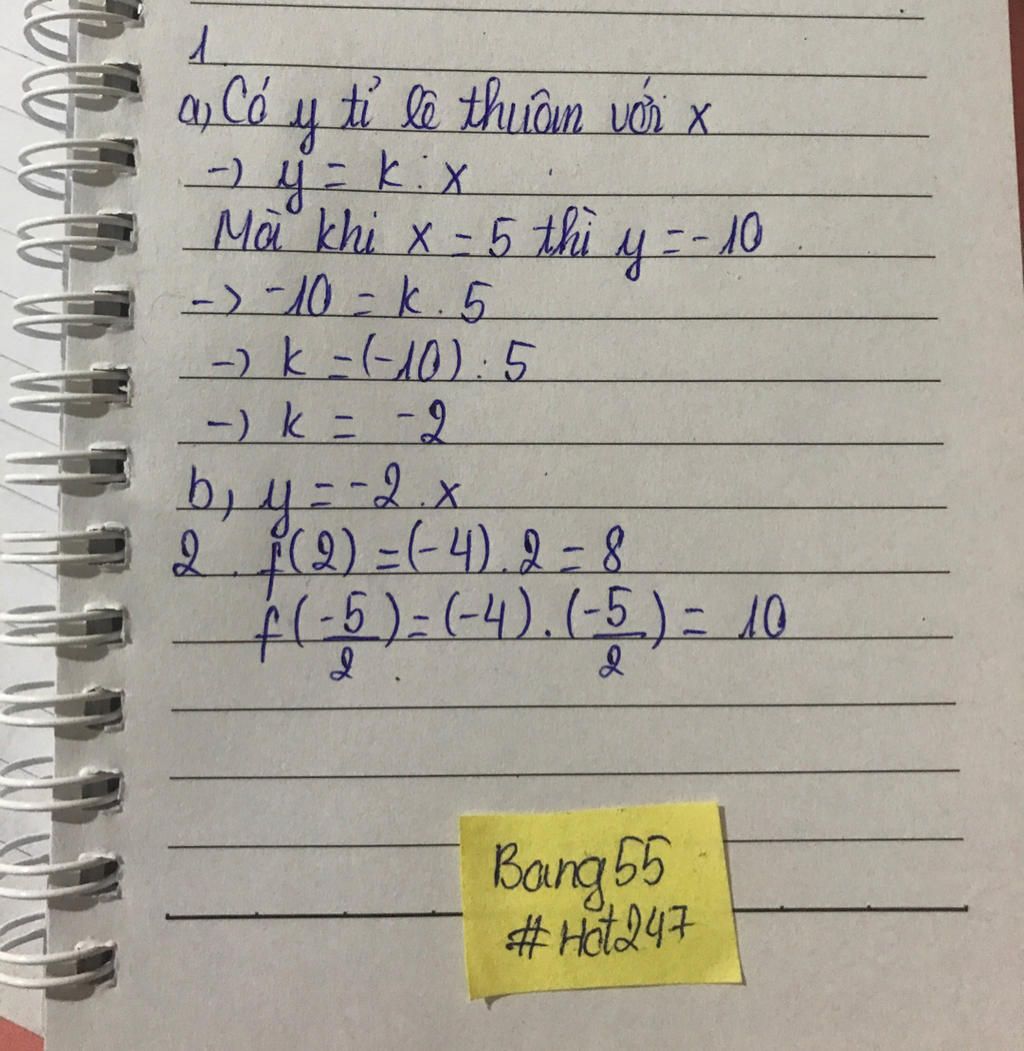 1
a, Có y tỉ lệ thuận với x
-> y = k . x
Mà khi x = 5 thì y = -10
-> -10 = k . 5
-> k = (-10) : 5
-> k = -2
b, y = -2 . x
2. f(2) = (-4) . 2 = 8
f(-5/2) = (-4) . (-5/2) = 10
Bang55
#Hot247